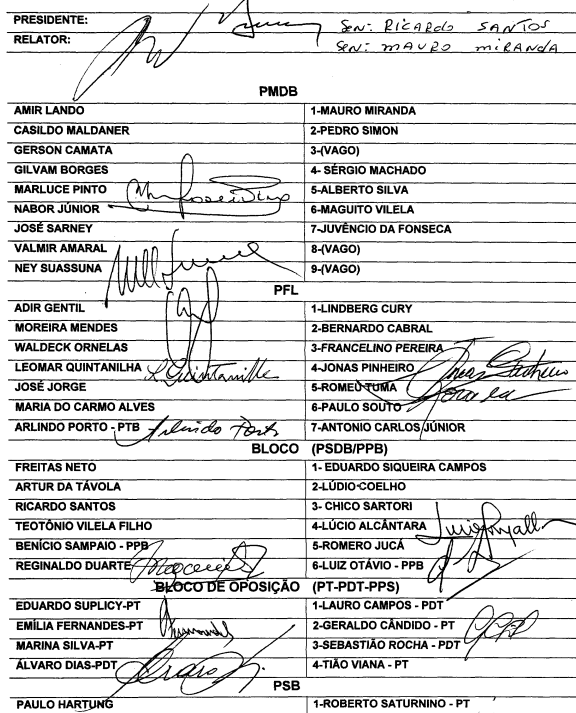 PRESIDENTE: Sen: RICARDO SANTOS
RELATOR: Sen: MAURO MIRANDA
PMDB
AMIR LANDO 1-MAURO MIRANDA
CASILDO MALDANER 2-PEDRO SIMON
GERSON CAMATA 3-(VAGO)
GILVAM BORGES 4- SÉRGIO MACHADO
MARLUCE PINTO 5-ALBERTO SILVA
NABOR JÚNIOR 6-MAGUITO VILELA
JOSÉ SARNEY 7-JUVÊNCIO DA FONSECA
VALMIR AMARAL 8-(VAGO)
NEY SUASSUNA 9-(VAGO)
PFL
ADIR GENTIL 1-LINDBERG CURY
MOREIRA MENDES 2-BERNARDO CABRAL
WALDECK ORNELAS 3-FRANCELINO PEREIRA
LEOMAR QUINTANILHA L Quintanilha 4-JONAS PINHEIRO Jonas Pinheiro
JOSÉ JORGE 5-ROMEU TUMA
MARIA DO CARMO ALVES 6-PAULO SOUTO
ARLINDO PORTO - PTB Arlindo Porto 7-ANTONIO CARLOS JÚNIOR
BLOCO (PSDB/PPB)
FREITAS NETO 1- EDUARDO SIQUEIRA CAMPOS
ARTUR DA TÁVOLA 2-LÚDIO COELHO
RICARDO SANTOS 3- CHICO SARTORI
TEOTÔNIO VILELA FILHO 4-LÚCIO ALCÂNTARA
BENÍCIO SAMPAIO - PPB 5-ROMERO JUCÁ
REGINALDO DUARTE 6-LUIZ OTÁVIO - PPB
BLOCO DE OPOSIÇÃO (PT-PDT-PPS)
EDUARDO SUPLICY-PT 1-LAURO CAMPOS - PDT
EMÍLIA FERNANDES-PT 2-GERALDO CÂNDIDO - PT
MARINA SILVA-PT 3-SEBASTIÃO ROCHA - PDT
ÁLVARO DIAS-PDT 4-TIÃO VIANA - PT
PSB
PAULO HARTUNG 1-ROBERTO SATURNINO - PT